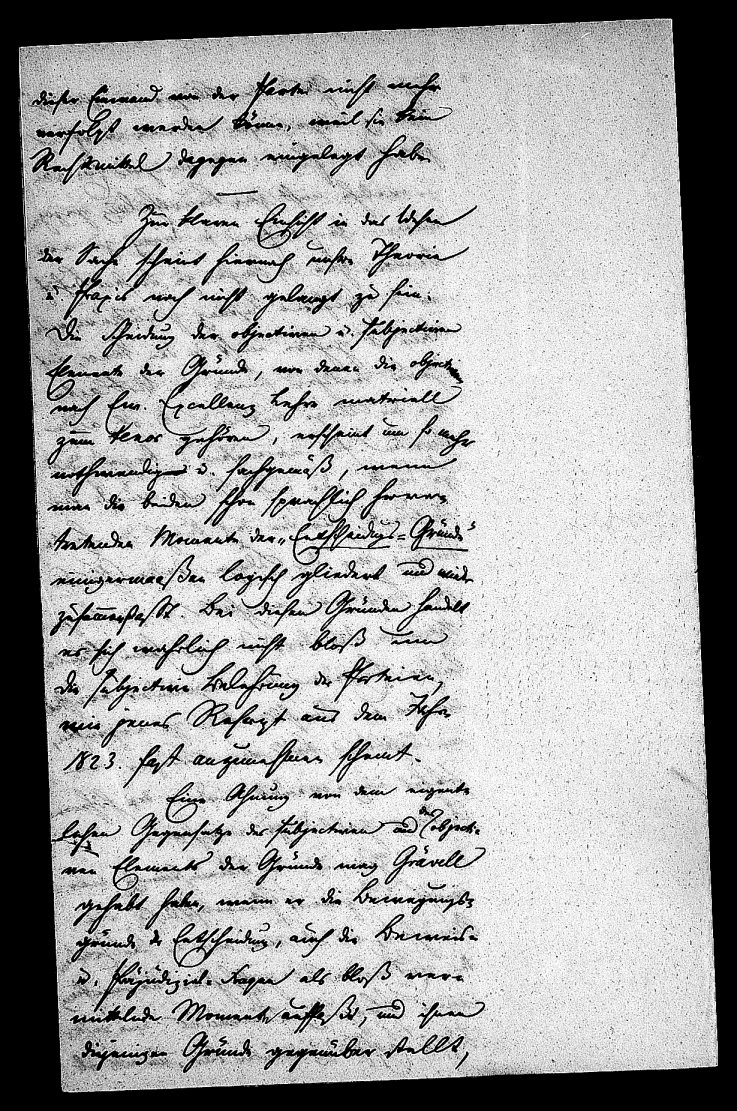 dieser Einwand von der Partei nicht mehr
verfolgt werden könne, weil sie kein
Rechtsmittel dagegen eingelegt habe.
Zur klaren Einsicht in das Wesen
der Sache scheint hiernach unsre Theorie
u. Praxis noch nicht gelangt zu sein.
Die Scheidung der objectiven u. subjectiven
Elemente der Gründe, von denen die objectiven
nach Ew. Excellenz Lehre materiell
zum Tenor gehören, erscheint um so mehr
nothwendig u. sachgemäß, wenn
man die beiden schon sprachlich hervor-
tretenden Momente der „Entscheidungs-Gründe“
einigermaaßen logisch gliedert und wieder
zusammenfaßt. Bei diesen Gründen handelt
es sich wahrlich nicht bloß um
die subjective Belehrung der Parteien,
wie jenes Rescript aus dem Jahre
1823. fast anzunehmen scheint.
Eine Ahnung von dem eigent-
lichen Gegensatze des subjectiven und des objecti-
ven Elements der Gründe mag Grävell
gehabt haben, wenn er die Bewegungs-
gründe der Entscheidung, auch die Beweis-
u. Präjudizial-Fragen als bloß ver-
mittelnde Momente auffaßt, und ihnen
diejenigen Gründe gegenüber stellt,